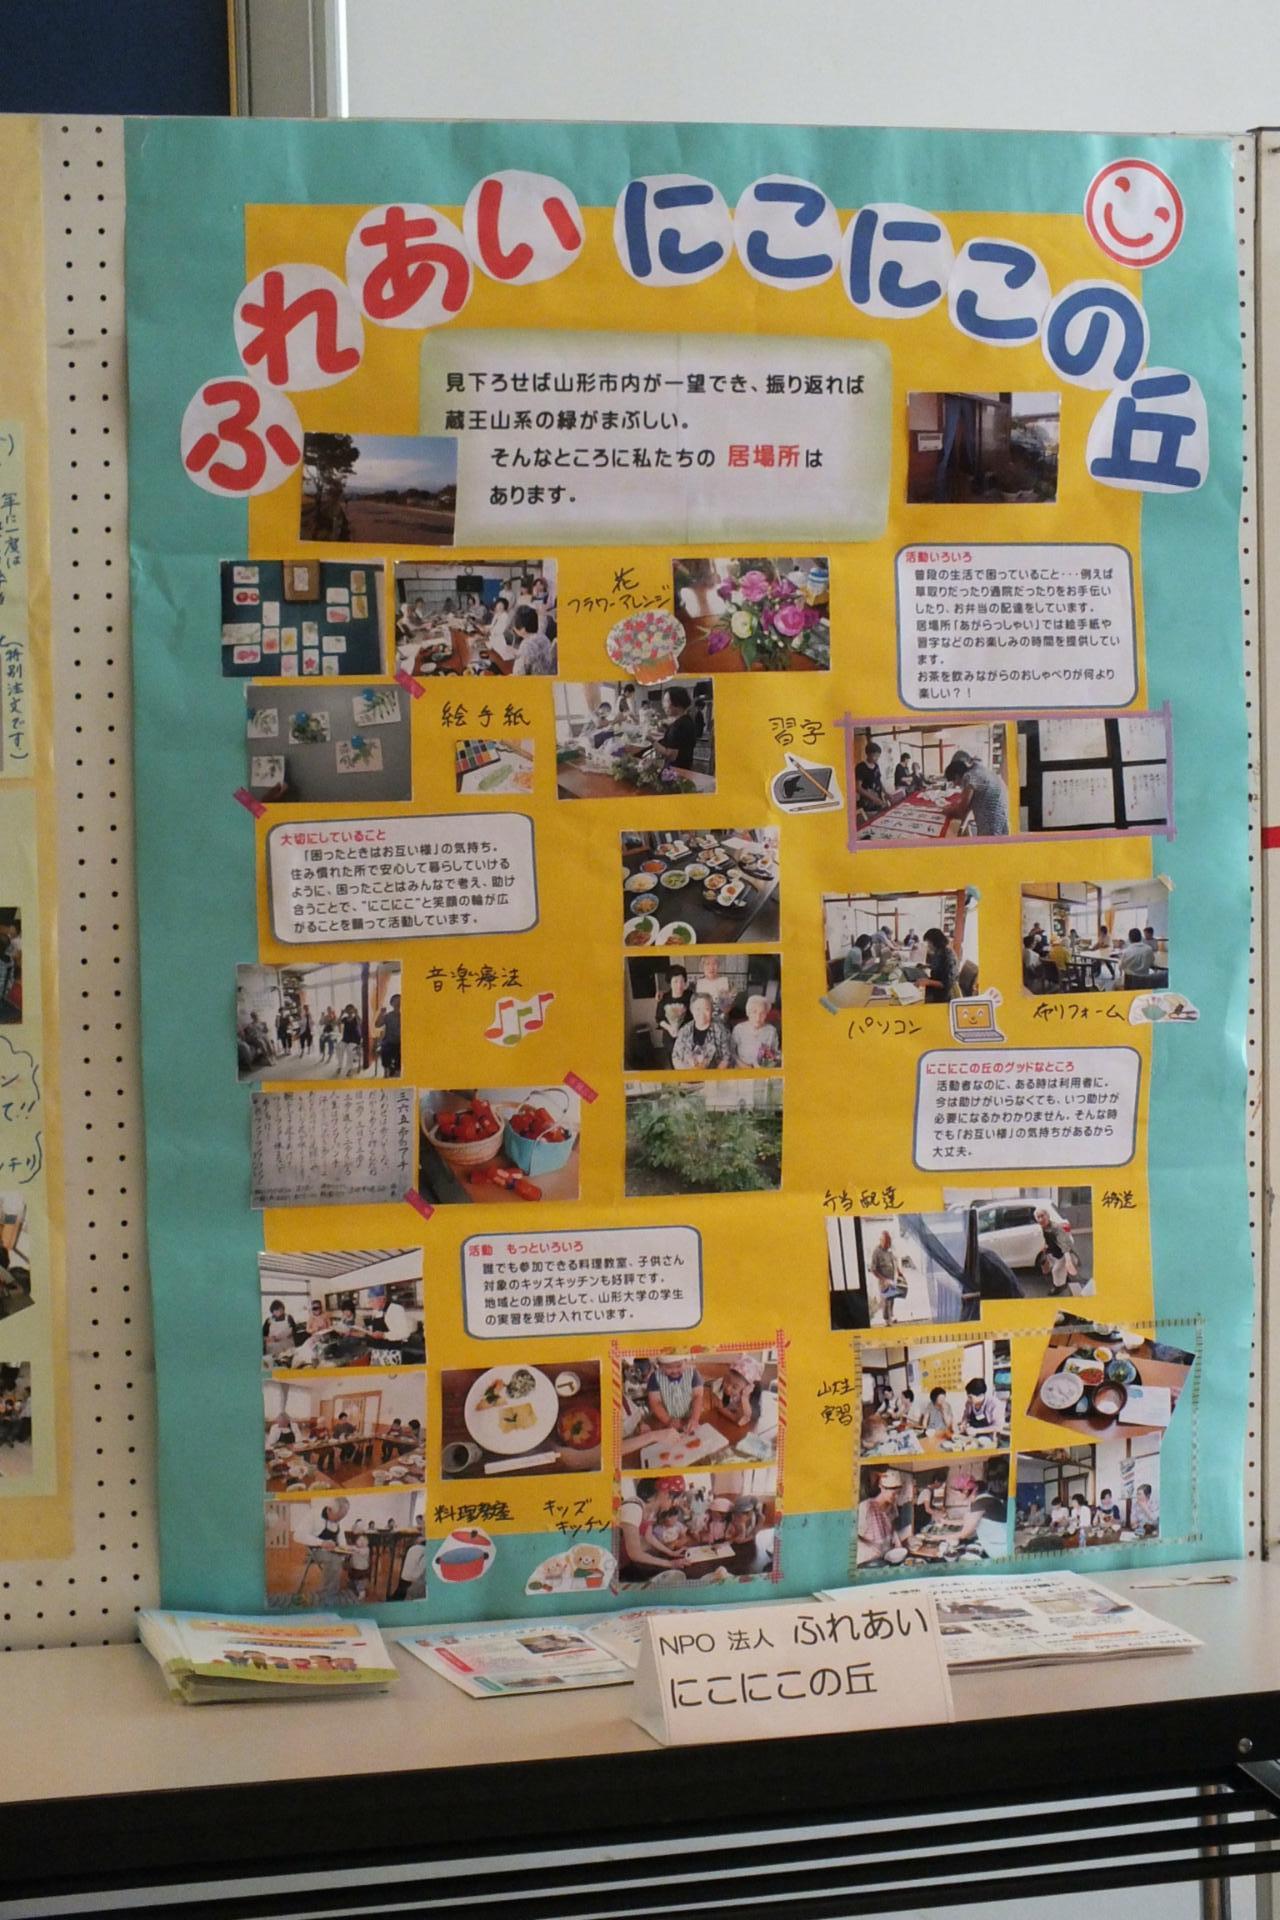 ふれあい にこにこの丘
見下ろせば山形市内が一望でき、振り返れば
蔵王山系の緑がまぶしい。
そんなところに私たちの 居場所は
あります。
花
フラワーアレンジ
活動いろいろ
普段の生活で困っていること・・・例えば
草取りだったり通院だったりをお手伝い
したり、お弁当の配達をしています。
居場所「あがらっしゃい」では絵手紙や
習字などのお楽しみの時間を提供してい
ます。
お茶を飲みながらのおしゃべりが何より
楽しい？！
絵手紙
習字
大切にしていること
「困ったときはお互い様」の気持ち。
住み慣れた所で安心して暮らしていける
ように、困ったことはみんなで考え、助け
合うことで、“にこにこ”と笑顔の輪が広
がることを願って活動しています。
音楽療法
パソコン
布リフォーム
にこにこの丘のグッドなところ
活動者なのに、ある時は利用者に。
今は助けがいらなくても、いつ助けが
必要になるかわかりません。そんな時
でも「お互い様」の気持ちがあるから
大丈夫。
三六五歩のマーチ
弁当配達
移送
活動 もっといろいろ
誰でも参加できる料理教室、子供さん
対象のキッズキッチンも好評です。
地域との連携として、山形大学の学生
の実習を受け入れています。
山大生
実習
料理教室
キッズ
キッチン
NPO 法人 ふれあい
にこにこの丘
年に一度は
(特別注文です)